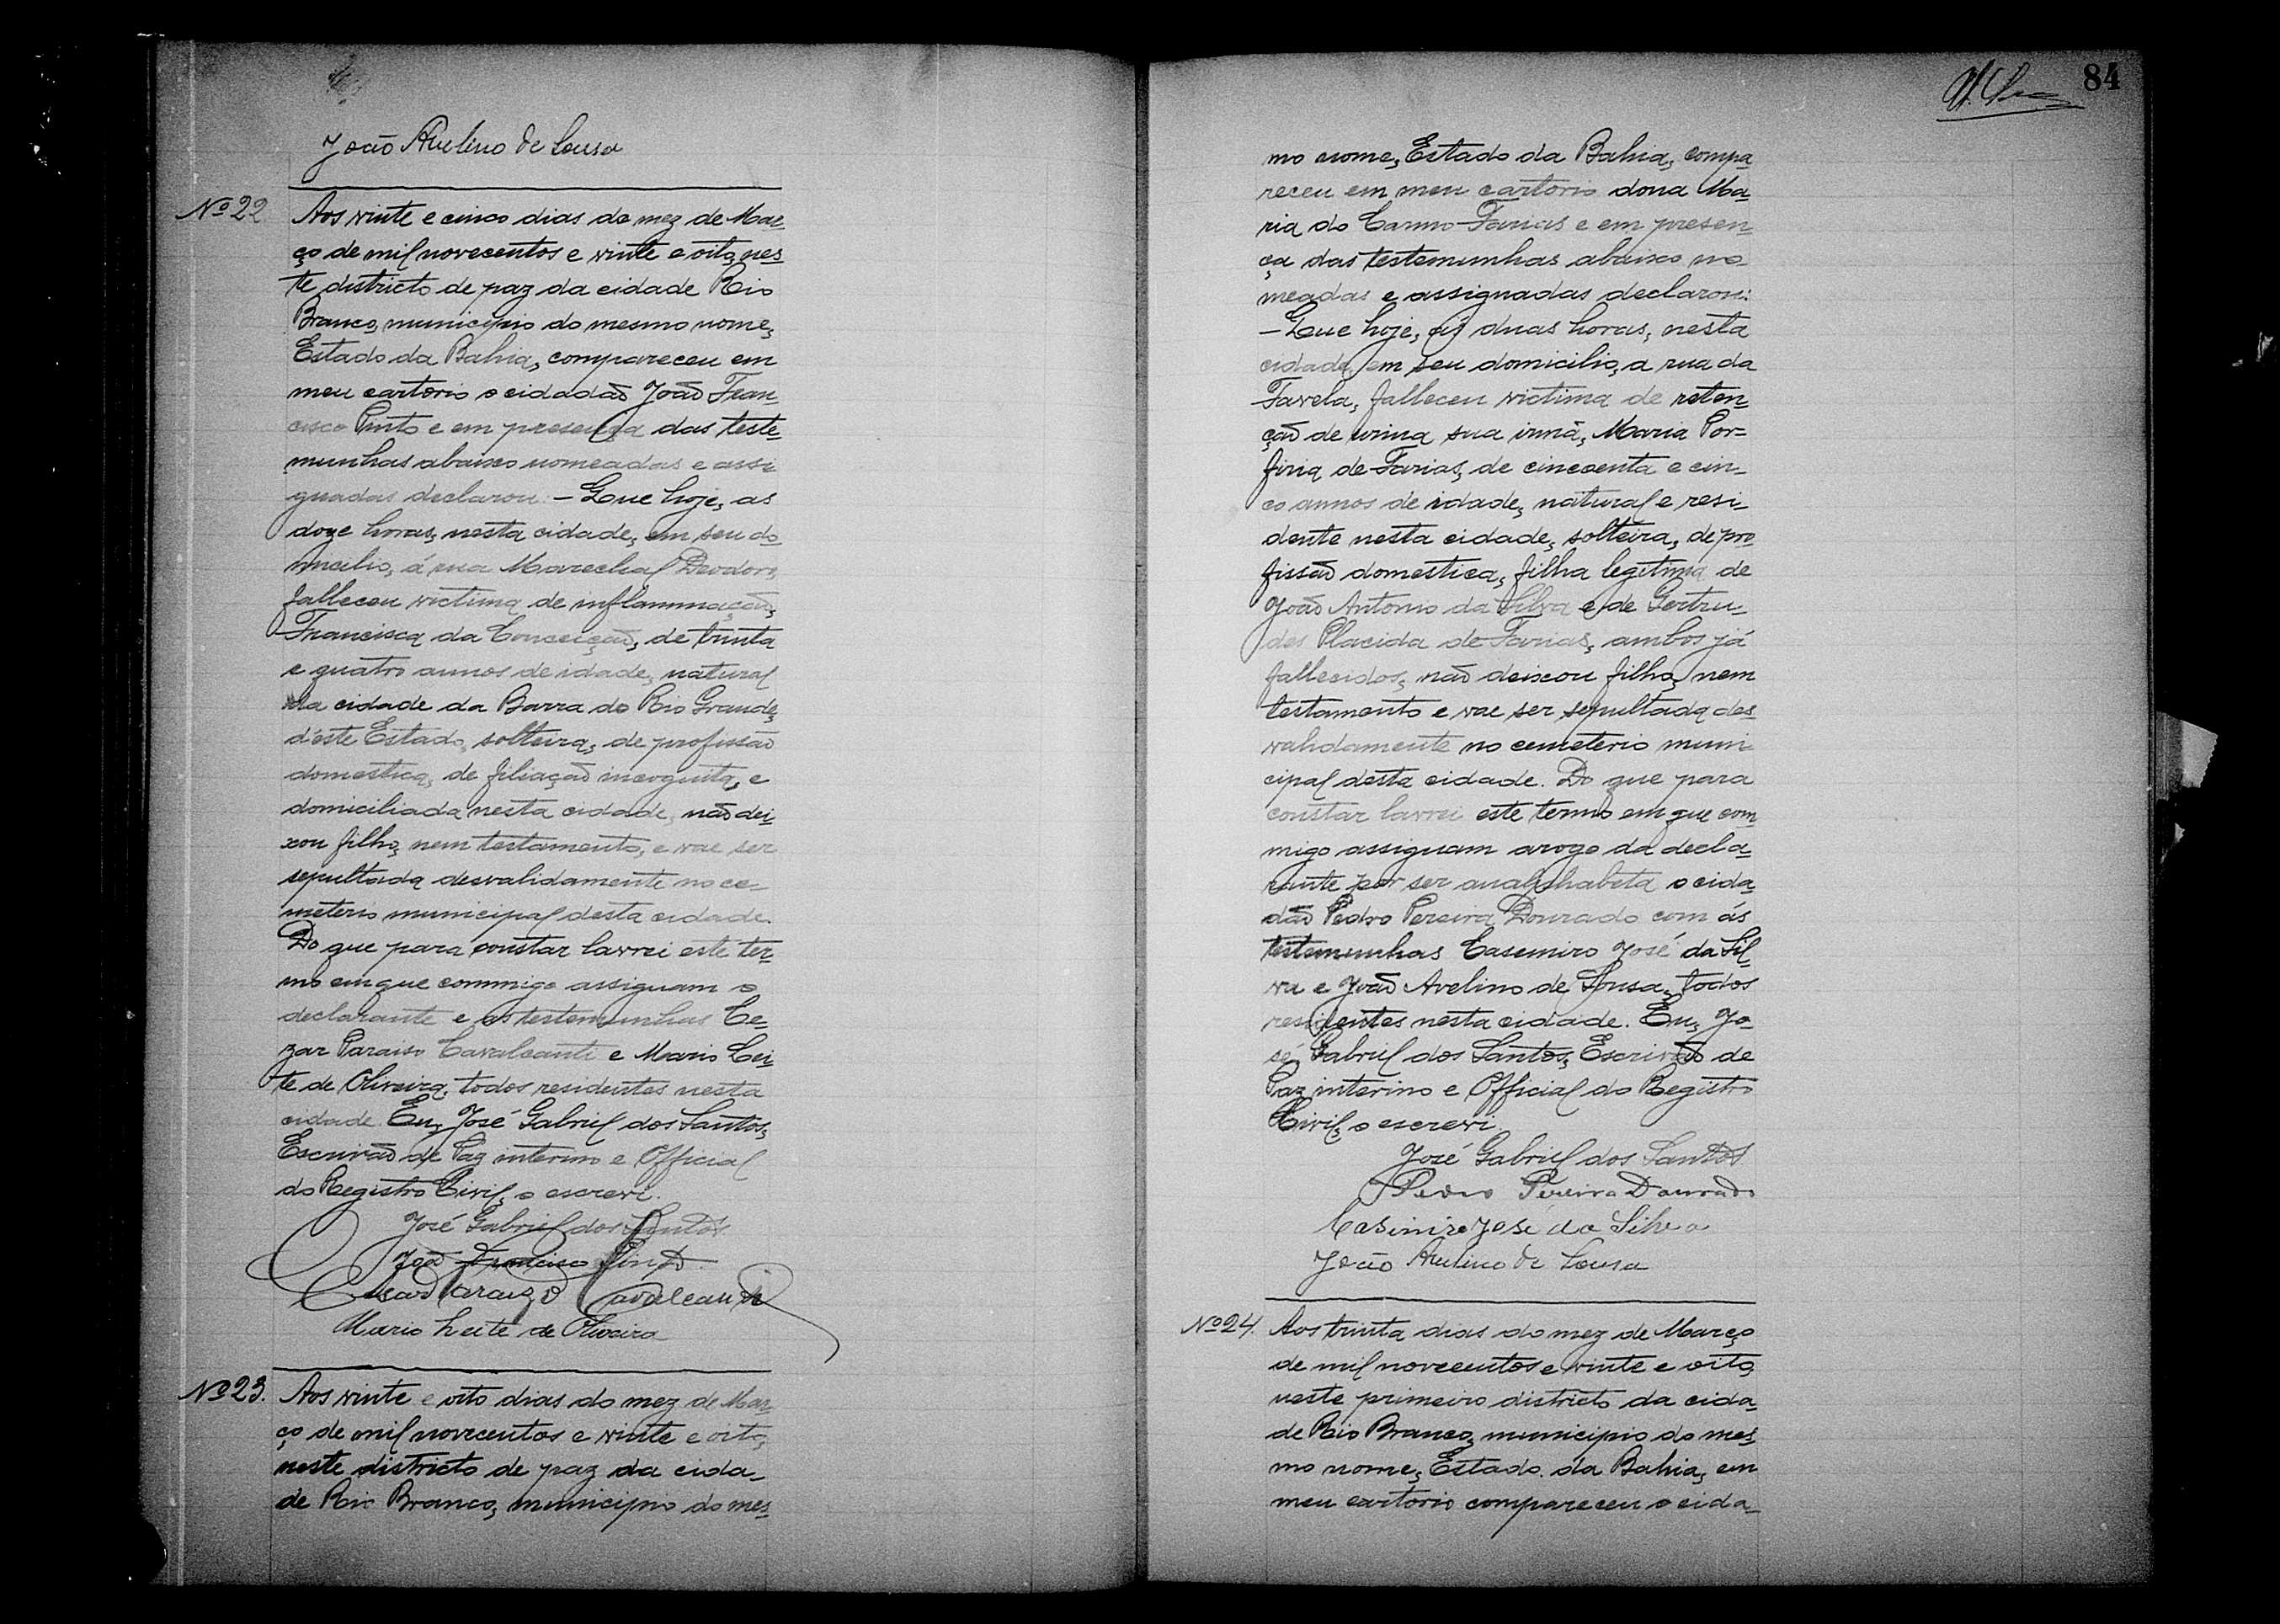 João Avelino de Sousa
Nº 22. Aos vinte e cinco dias do mez de Mar-
ço de mil novecentos e vinte e oito, nes-
te districto de paz da cidade Rio
Branco, municipio do mesmo nome,
Estado da Bahia, compareceu em
meu cartorio o cidadão João Fran-
cisco Pinto e em presença das teste-
munhas abaixo nomeadas e assi-
gnadas declarou: - Que hoje, as
doze horas, nesta cidade, em seu do-
micilio, á rua Marechal Deodoro,
falleceu victima de inflammação,
Francisca da Conceição, de trinta
e quatro annos de idade, natural
da cidade da Barra do Rio Grande,
d'este Estado, solteira, de profissão
domestica, de filiação incognita, e
domiciliada nesta cidade, não dei-
xou filho, nem testamento, e vae ser
sepultada desvalidamente no ce-
meterio municipal desta cidade.
Do que para constar lavrei este ter-
mo em que commigo assignam o
declarante e as testemunhas Ce-
zar Paraiso Cavalcanti e Mario Lei-
te de Oliveira, todos residentes nesta
cidade. Eu, José Gabriel dos Santos,
Escrivão de Paz interino e Official
do Registro Civil, o escrevi.
José Gabriel dos Santos
João Francisco Pinto
Cesar Paraizo Cavalcanti
Mario Leite de Oliveira
Nº 23. Aos vinte e oito dias do mez de Mar-
ço de mil novecentos e vinte e oito,
neste districto de paz da cida-
de Rio Branco, municipio do mes-
84
mo nome, Estado da Bahia, compa-
receu em meu cartorio dona Ma-
ria do Carmo Farias e em presen-
ça das testemunhas abaixo no-
meadas e assignadas declarou:
- Que hoje, ás duas horas, nesta
cidade, em seu domicilio, a rua da
Favela, falleceu victima de reten-
ção de urina sua irmã, Maria Por-
firia de Farias, de cincoenta e cin-
co annos de idade, natural e resi-
dente nesta cidade, solteira, de pro-
fissão domestica, filha legitima de
João Antonio da Silva e de Gertru-
des Placida de Farias, ambos já
fallecidos, não deixou filho, nem
testamento e vae ser sepultada des-
validamente no cemeterio muni-
cipal desta cidade. Do que para
constar lavrei este termo em que com-
migo assignam arogo da decla-
rante por ser analphabeta o cida-
dão Pedro Pereira Dourado com ás
testemunhas Casemiro José da Sil-
va e João Avelino de Sousa, todos
residentes nesta cidade. Eu, Jo-
sé Gabriel dos Santos, Escrivão de
Paz interino e Official do Registro
Civil, o escrevi.
José Gabriel dos Santos
Pedro Pereira Dourado
Casimiro José da Silva
João Avelino de Sousa
Nº 24. Aos trinta dias do mez de Março
de mil novecentos e vinte e oito,
neste primeiro districto da cida-
de Rio Branco, municipio do mes-
mo nome, Estado da Bahia, em
meu cartorio compareceu o cida-